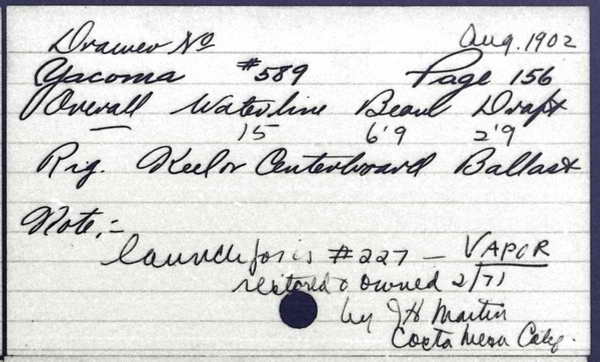 Drawer No Aug. 1902
Yacoma #589 Page 156
Overall Waterline Beam Draft
— 15 6'9 2'9
Rig. Keel or Centerboard Ballast
Note:-
launch for is #227 — VAPOR
restored & owned 2/71
by JH Martin
Costa Mesa Calif.